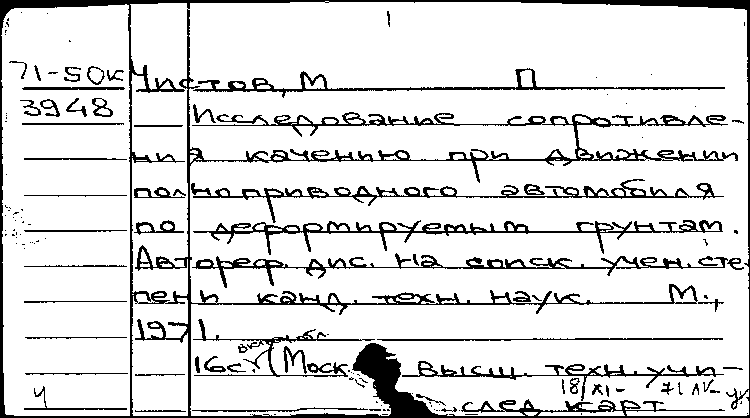 71-50к Чистов, М П
3948 Исследование сопротивле-
ния качению при движении
полноприводного автомобиля
по деформируемым грунтам.
Автореф. дис. на соиск. учен. сте-
пени канд. техн. наук. М.,
1971.
включ. обл.
16с. (Моск. высш. техн. учи-
18/XI- 71
Ч след карт